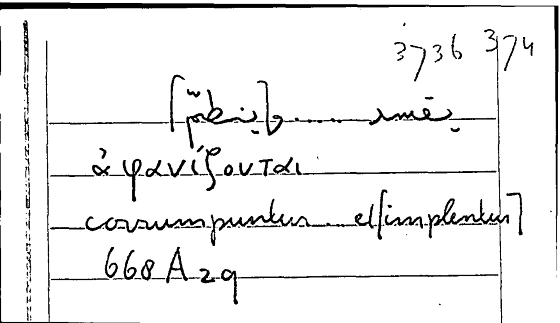 3736 374
ἀφανίζονται
corrumpuntur .... et [implentur]
668 A 29